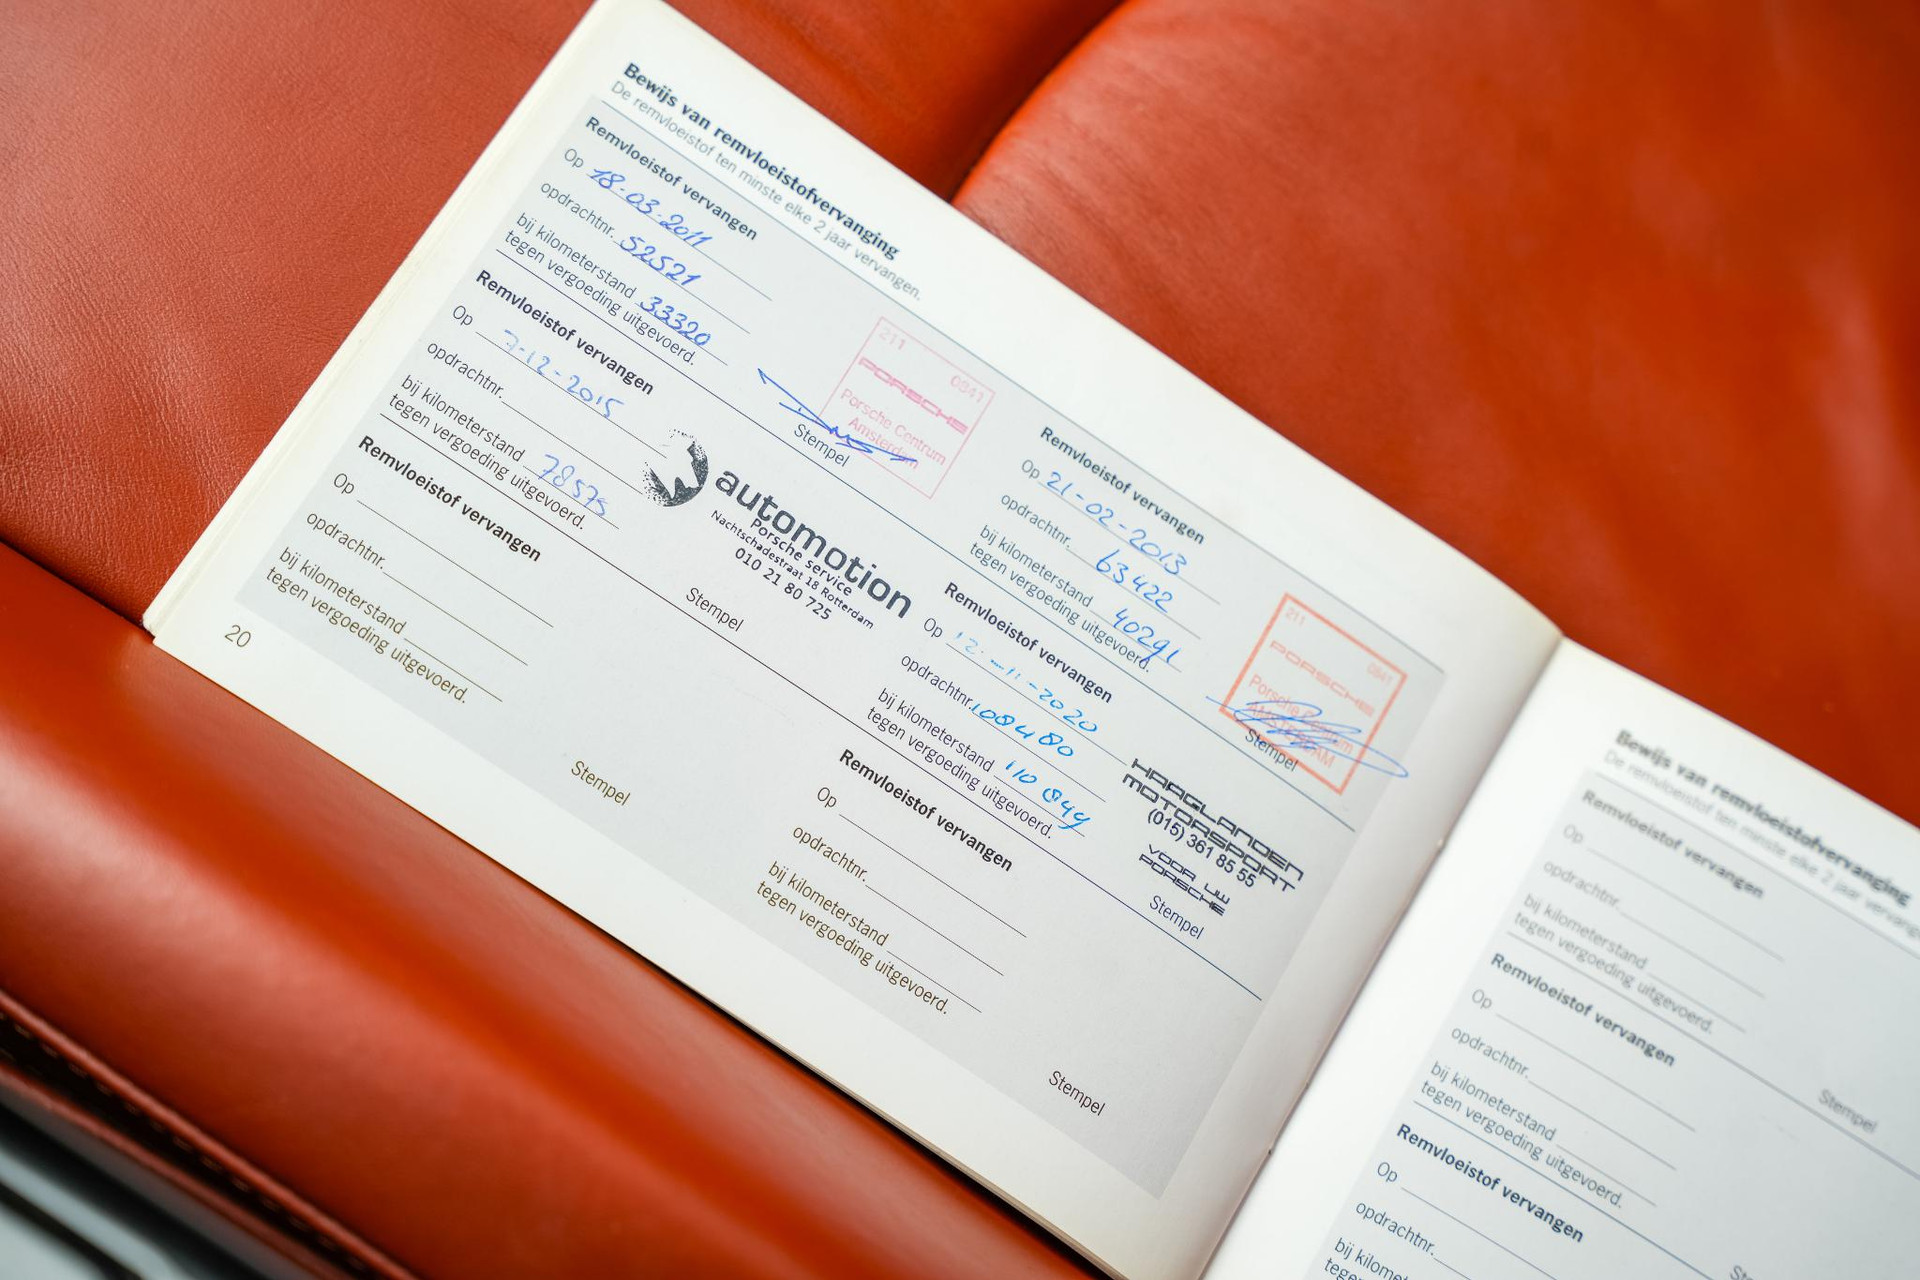 Bewijs van remvloeistofvervanging
De remvloeistof ten minste elke 2 jaar vervangen.
Remvloeistof vervangen
Op 18-03-2011
opdrachtnr. 52521
bij kilometerstand 33320
tegen vergoeding uitgevoerd.
211
0341
PORSCHE
Porsche Centrum
Amsterdam
Stempel
Remvloeistof vervangen
Op 21-02-2013
opdrachtnr. 63422
bij kilometerstand 40291
tegen vergoeding uitgevoerd.
211
0341
PORSCHE
Porsche Centrum
AMSTERDAM
Stempel
Remvloeistof vervangen
Op 7-12-2015
opdrachtnr.
bij kilometerstand 78575
tegen vergoeding uitgevoerd.
automotion
Porsche service
Nachtschadestraat 18 Rotterdam
010 21 80 725
Stempel
Remvloeistof vervangen
Op 12-11-2020
opdrachtnr. 108480
bij kilometerstand 110 844
tegen vergoeding uitgevoerd.
HAAGLANDEN
MOTORSPORT
(015) 361 85 55
VOOR UW
PORSCHE
Stempel
Remvloeistof vervangen
Op
opdrachtnr.
bij kilometerstand
tegen vergoeding uitgevoerd.
Stempel
Remvloeistof vervangen
Op
opdrachtnr.
bij kilometerstand
tegen vergoeding uitgevoerd.
Stempel
20
Bewijs van remvloeistofvervanging
De remvloeistof ten minste elke 2 jaar
Remvloeistof vervangen
Op
opdrachtnr.
bij kilometerstand
tegen vergoeding uitgevoerd.
Stempel
Remvloeistof vervangen
Op
opdrachtnr.
bij kilometerstand
tegen vergoeding uitgevoerd.
Remvloeistof vervangen
Op
opdrachtnr.